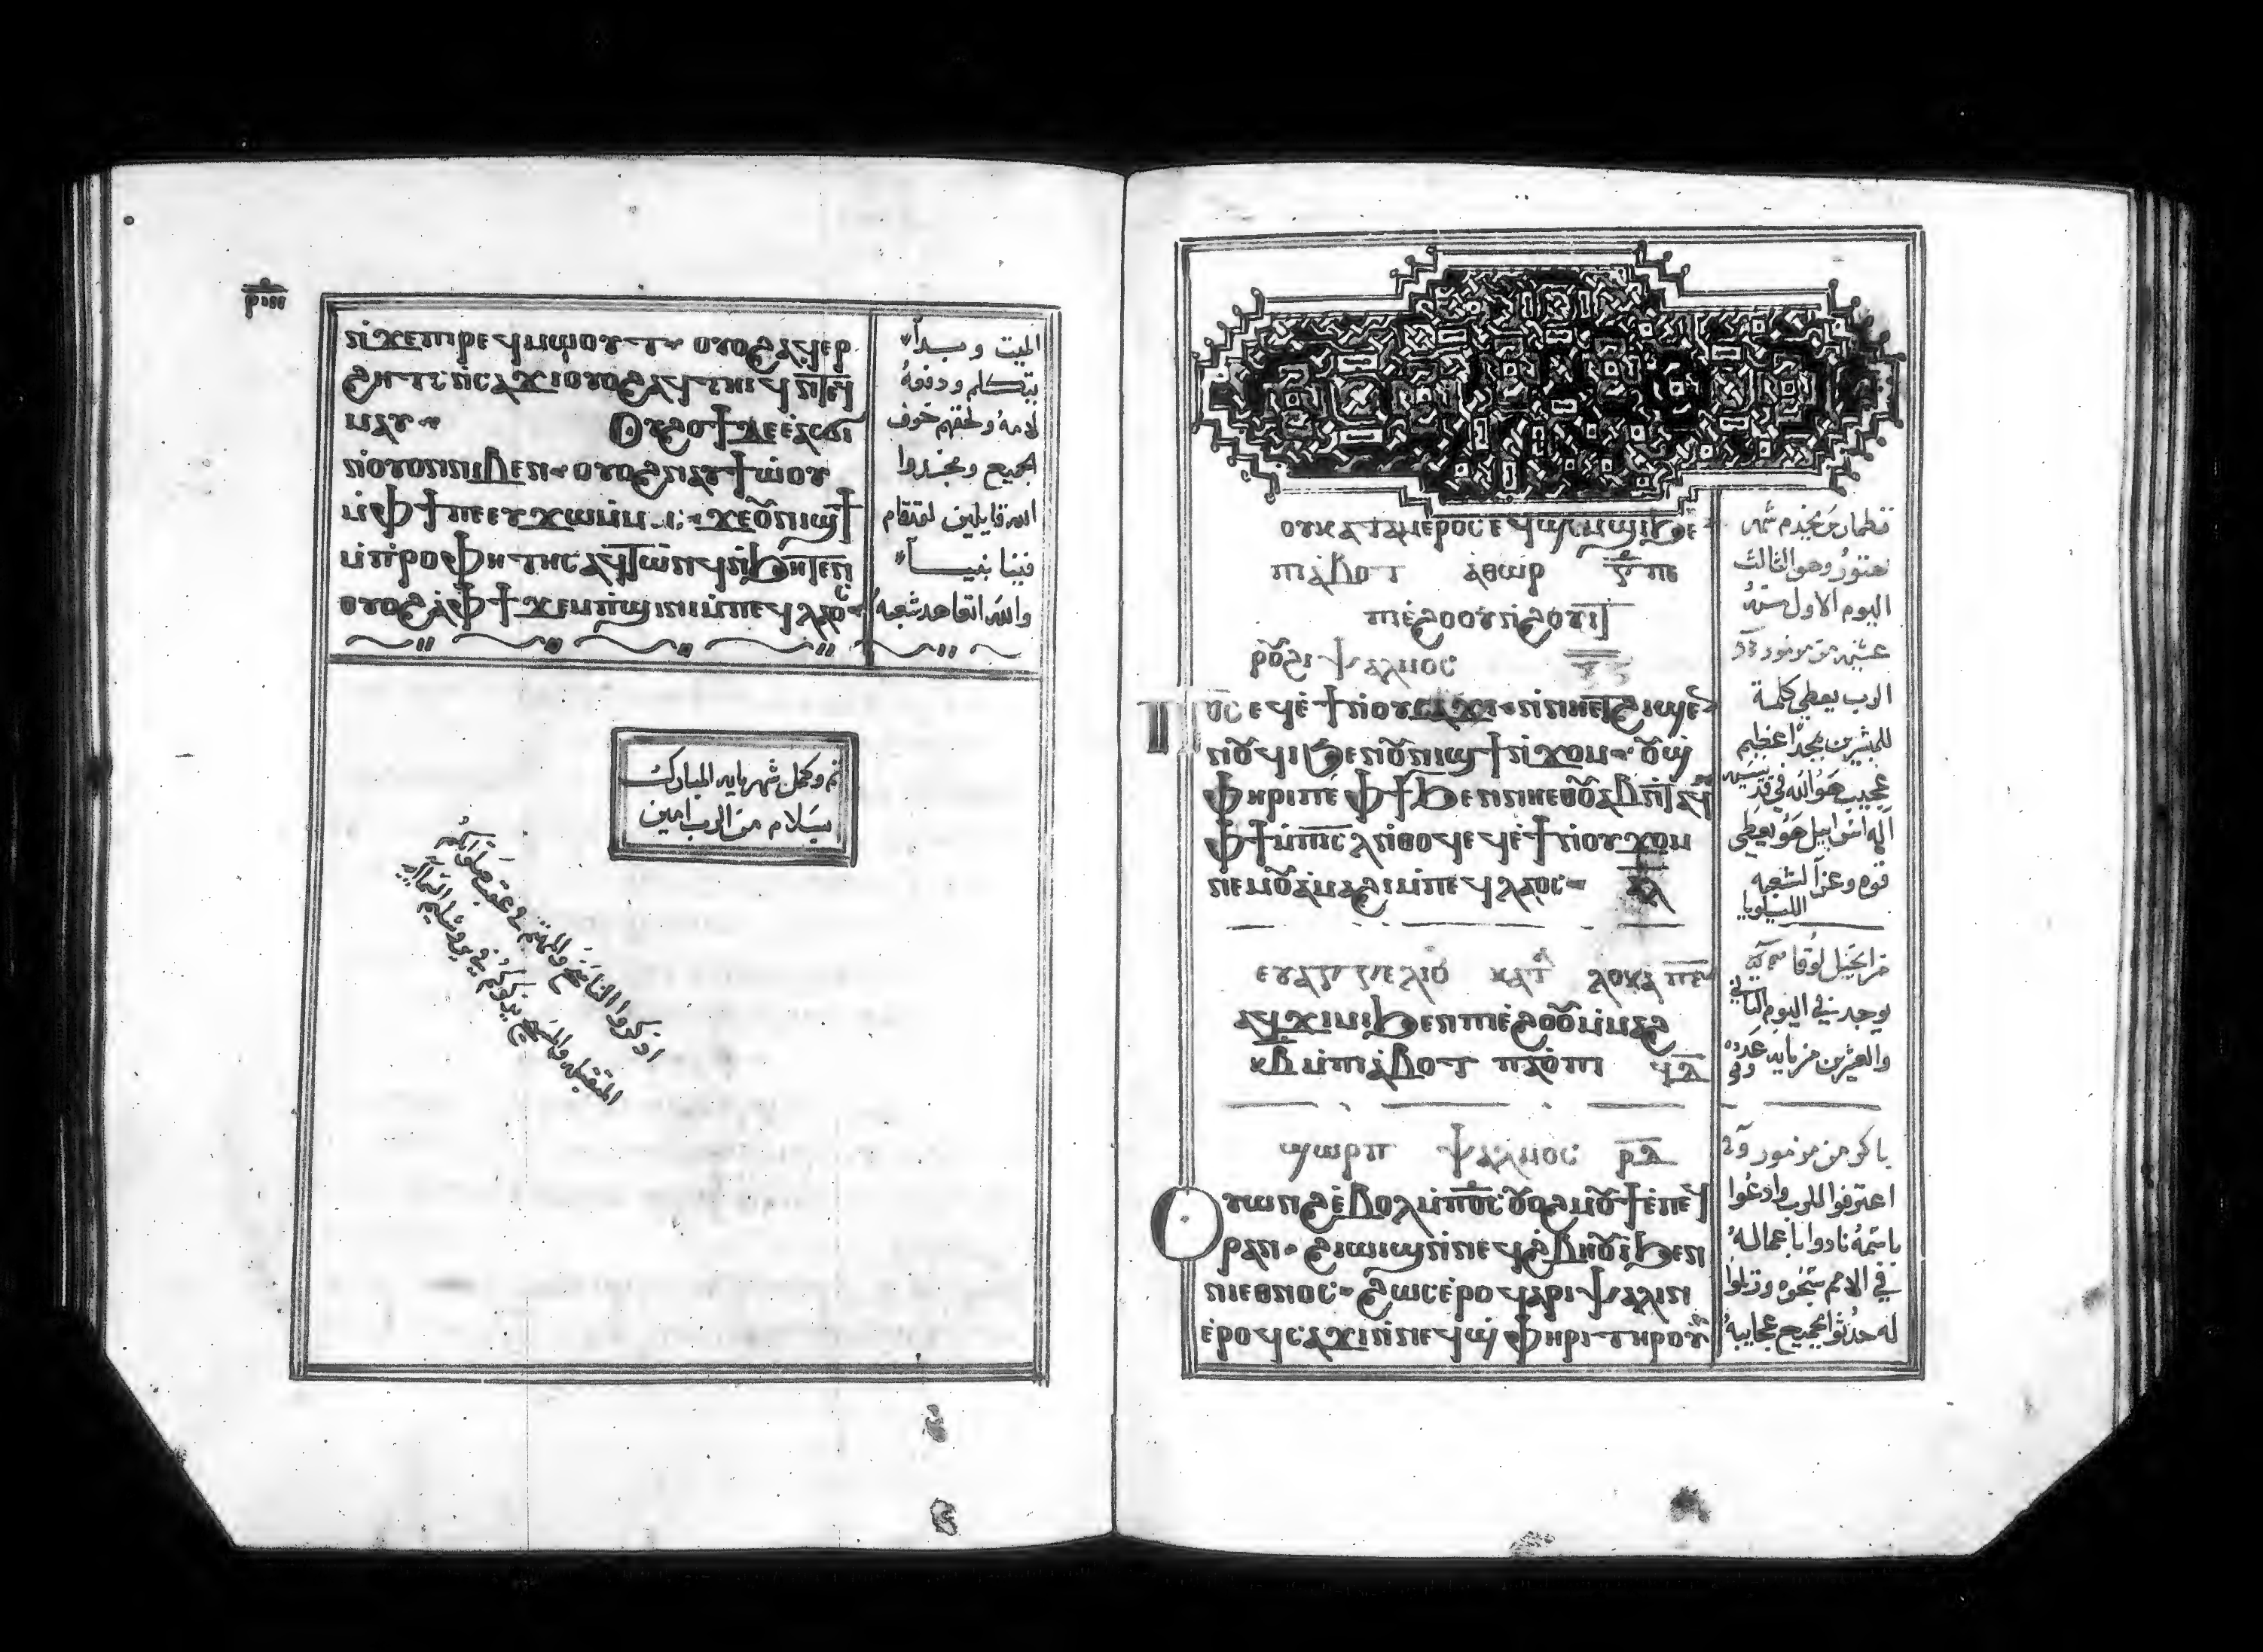 ⲣⲓⲏ
ⲛ̀ϫⲉⲡⲓⲣⲉϥⲙⲱⲟⲩⲧ ⲟⲩⲟϩ ⲁϥⲉⲣ
ϩⲏⲧⲥ ⲛ̀ⲥⲁϫⲓ ⲟⲩⲟϩ ⲁϥⲧⲏⲓϥ ⲛ̀ⲧⲉϥ
ⲙⲁⲩ
ⲛ̀ⲟⲩⲟⲛ ⲛⲓⲃⲉⲛ ⲟⲩⲟϩ ⲛⲁⲩϯⲱ̀ⲟⲩ
ⲙ̀ⲫϯ ⲡⲉ ⲉⲩϫⲱ ⲙ̀ⲙⲟⲥ ϫⲉ ⲟⲩⲛⲓϣϯ
ⲙ̀ⲡⲣⲟⲫⲏⲧⲏⲥ ⲁϥⲧⲱⲛϥ ⲛ̀ϧⲏⲧⲉⲛ
ⲟⲩⲟϩ ⲁ̀ⲫϯ ϫⲉⲙⲡ̀ϣⲓⲛⲓ ⲙ̀ⲡⲉϥⲗⲁⲟⲥ
الميت وبدأ
يتكلم ودفعه
لامه ولحقهم خوف
الجميع ومجدوا
الله قايلين لقد قام
فينا نبيا
والله اتعاهد شعبه
تم وكمل شهر بابه المبارك
بسلام من الرب امين
اذكروا الناسخ والمهتم في عقب صلواتكم
المتقبله والمسيح يذكركم في يروشليم
ⲡⲓⲁ̀ⲃⲟⲧ ⲁ̀ⲑⲱⲣ
ⲡⲓⲉ̀ϩⲟⲟⲩ ⲛ̀ϩⲟⲩⲓⲧ
ⲣⲟⲩϩⲓ ⲯⲁⲗⲙⲟⲥ
ⲡϭⲥ ⲉϥⲉ̀ϯ ⲛ̀ⲟⲩⲥⲁϫⲓ ⲛ̀ⲛⲏⲉⲧϩⲓϣⲉⲛ
ⲛⲟⲩϥⲓ ϧⲉⲛ ⲟⲩⲛⲓϣϯ ⲛ̀ϫⲟⲙ ⲟⲩϣ
ⲫⲏⲣⲓ ⲡⲉ ⲫϯ ϧⲉⲛ ⲛⲏⲉⲑⲟⲩⲁⲃ ⲛ̀ⲧⲁϥ
ⲫϯ ⲙ̀ⲡⲓⲥⲗ ⲛ̀ⲑⲟϥ ⲉϥⲉ̀ϯ ⲛ̀ⲟⲩϫⲟⲙ
ⲛⲉⲙ ⲟⲩⲁ̀ⲙⲁϩⲓ ⲙ̀ⲡⲉϥⲗⲁⲟⲥ ⲁⲗ
ⲉⲩⲁⲅⲅⲉⲗⲓⲟ ⲕⲁⲧ ⲗⲟⲩⲕⲁ
ⲁϥⲭⲏ ϧⲉⲛ ⲡⲓⲉ̀ϩⲟⲟⲩ ⲙ̀ⲙⲁϩ
ⲕⲃ ⲙ̀ⲡⲓⲁ̀ⲃⲟⲧ ⲡⲁⲟⲡⲓ
ϣⲱⲣⲡ ⲯⲁⲗⲙⲟⲥ ⲣⲇ
ⲟⲩⲱⲛϩ ⲉ̀ⲃⲟⲗ ⲙ̀ⲡϭⲥ ⲟⲩⲟϩ ⲙⲟⲩϯ ⲉ̀ⲡⲉϥ
ⲣⲁⲛ ϩⲓⲱⲓϣ ⲛ̀ⲛⲉϥϩ̀ⲃⲏⲟⲩⲓ ϧⲉⲛ
ⲛⲓⲉⲑⲛⲟⲥ ϩⲱⲥ ⲉ̀ⲣⲟϥ ⲁⲣⲓⲯⲁⲗⲓⲛ
ⲉ̀ⲣⲟϥ ⲥⲁϫⲓ ⲛ̀ⲛⲉϥϣ̀ⲫⲏⲣⲓ ⲧⲏⲣⲟⲩ
هتور وهو الثالث
اليوم الاول منه
عشيه من مزمور
الرب يعطي كلمة
للمبشرين مجدا عظيم
عجيب هو الله في قديسيه
اله اسراييل هو يعطي
قوه وعزا لشعبه
الليلويا
من انجيل لوقا
يوجد في اليوم الثاني
والعشرين من بابه
باكر من مزمور
اعترفوا للرب وادعوا
باسمه نادوا باعماله
في الامم سبحوه ورتلوا
له حدثوا بجميع عجايبه